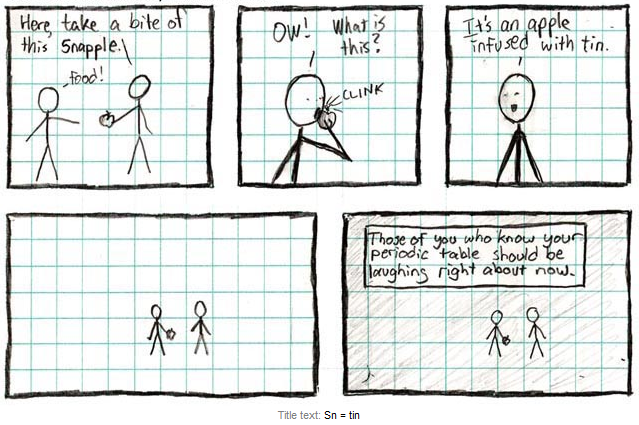 Here, take a bite of
this Snapple.
food!
OW! What is
this?
CLINK
It's an apple
infused with tin.
Those of you who know your
periodic table should be
laughing right about now.
Title text: Sn = tin